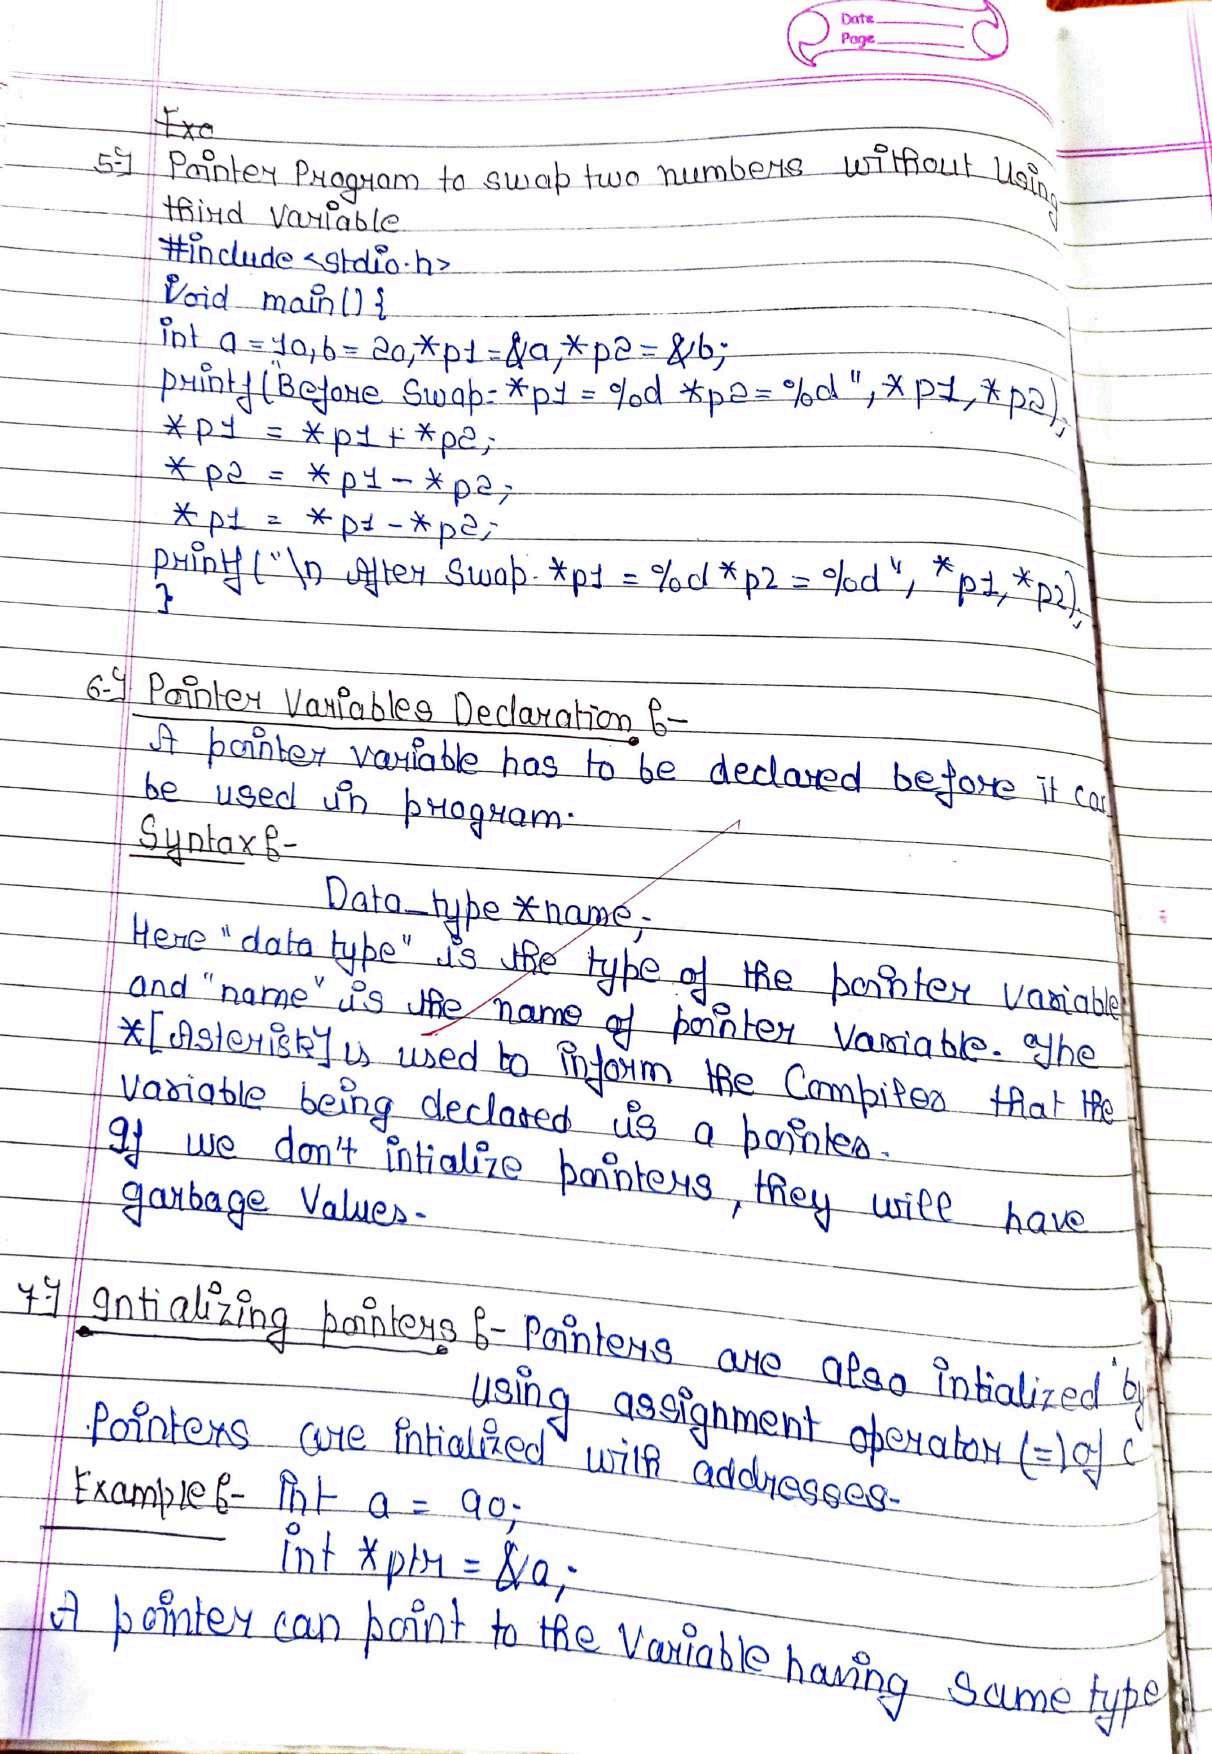 Date
Page
Exa
5-} Pointer Program to swap two numbers without Using
third variable
#include <stdio.h>
Void main() {
int a = 10, b = 20, *p1 = &a, *p2 = &b;
printf("Before Swap- *p1 = %d *p2 = %d", *p1, *p2);
*p1 = *p1 + *p2;
*p2 = *p1 - *p2;
*p1 = *p1 - *p2;
printf("\n After Swap- *p1 = %d *p2 = %d", *p1, *p2);
}
6-} Pointer Variables Declaration :-
A pointer variable has to be declared before it can
be used in program.
Syntax :-
Data_type *name;
Here "data type" is the type of the pointer variable
and "name" is the name of pointer Variable. The
*[Asterisk] is used to inform the Compiler that the
variable being declared is a pointer.
If we don't intialize pointers, they will have
garbage Values.
7-} Intializing pointers :- Pointers are also intialized by
using assignment operator (=) of C
Pointers are intialized with addresses.
Example :- int a = 90;
int *ptr = &a;
A pointer can point to the Variable having same type